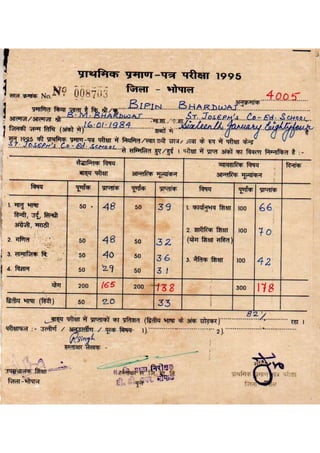 प्राथमिक प्रमाण-पत्र परीक्षा 1995
जिला - भोपाल
No 008703
4005
प्रमाणित किया जाता है कि BIPIN BHARDWAJ अनुक्रमांक
B.M. BHARDWAJ ST. JOSEPH'S CO-ED. SCHOOL
जिनकी जन्म तिथि (अंकों में) 16-01-1984 शब्दों में Sixteenth January Eightyfour
सन् 1995 की प्राथमिक प्रमाण पत्र परीक्षा में नियमित
ST. JOSEPH'S CO-ED. SCHOOL से सम्मिलित हुए/हुई । परीक्षा में प्राप्त अंकों का विवरण निम्नांकित है :-
सैद्धान्तिक विषय व्यावहारिक विषय दिनांक
बाह्य परीक्षा आन्तरिक मूल्यांकन आन्तरिक मूल्यांकन
विषय पूर्णांक प्राप्तांक पूर्णांक प्राप्तांक विषय पूर्णांक प्राप्तांक
1. मातृ भाषा 50 48 50 39 1. कार्यानुभव शिक्षा 100 66
हिन्दी, उर्दू, सिन्धी
अंग्रेजी, मराठी
2. शारीरिक शिक्षा 100 70
2. गणित 50 48 50 32 (योग शिक्षा सहित)
3. सामाजिक वि. 50 40 50 36 3. नैतिक शिक्षा 100 42
4. विज्ञान 50 29 50 31
योग 200 165 200 138 300 178
द्वितीय भाषा (हिंदी) 50 20 33
बाह्य परीक्षा में प्राप्तांकों का प्रतिशत (द्वितीय भाषा के अंक छोड़कर) 82% रहा ।
परीक्षाफल :- उत्तीर्ण / अनुत्तीर्ण / पूरक विषय 1). 2)
हस्ताक्षर लेखक -
उपसंचालक शिक्षा
जिला-भोपाल
प्राथमिक प्रमाण पत्र परीक्षा
जिला भोपाल